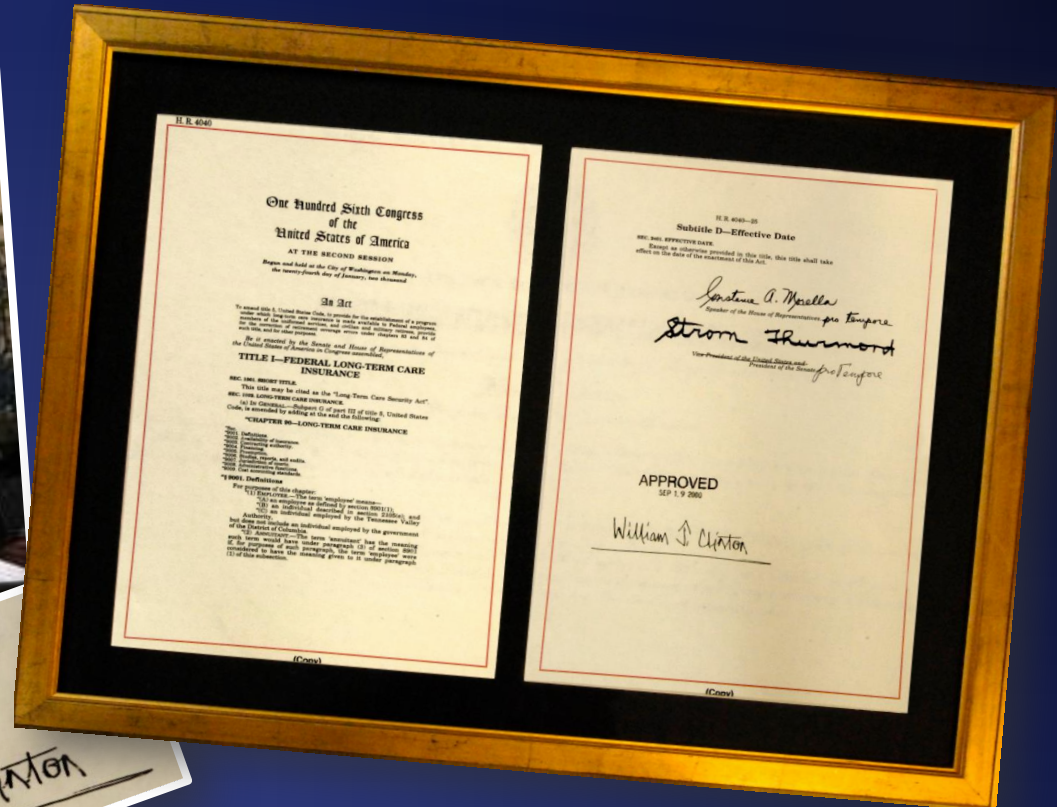 H. R. 4040
One Hundred Sixth Congress
of the
United States of America
AT THE SECOND SESSION
Begun and held at the City of Washington on Monday,
the twenty-fourth day of January, two thousand
An Act
To amend title 5, United States Code, to provide for the establishment of a program
under which long-term care insurance is made available to Federal employees,
members of the uniformed services, and civilian and military retirees, provide
for the correction of retirement coverage errors under chapters 83 and 84 of
such title, and for other purposes.
Be it enacted by the Senate and House of Representatives of
the United States of America in Congress assembled,
TITLE I—FEDERAL LONG-TERM CARE
INSURANCE
SEC. 1001. SHORT TITLE.
This title may be cited as the "Long-Term Care Security Act".
SEC. 1002. LONG-TERM CARE INSURANCE.
(a) IN GENERAL.—Subpart G of part III of title 5, United States
Code, is amended by adding at the end the following:
"CHAPTER 90—LONG-TERM CARE INSURANCE
"Sec.
"9001. Definitions.
"9002. Availability of insurance.
"9003. Contracting authority.
"9004. Financing.
"9005. Preemption.
"9006. Studies, reports, and audits.
"9007. Jurisdiction of courts.
"9008. Administrative functions.
"9009. Cost accounting standards.
"§ 9001. Definitions
For purposes of this chapter:
"(1) EMPLOYEE.—The term 'employee' means—
"(A) an employee as defined by section 8901(1);
"(B) an individual described in section 2105(e); and
"(C) an individual employed by the Tennessee Valley
Authority,
but does not include an individual employed by the government
of the District of Columbia.
"(2) ANNUITANT.—The term 'annuitant' has the meaning
such term would have under paragraph (3) of section 8901
if, for purposes of such paragraph, the term 'employee' were
considered to have the meaning given to it under paragraph
(1) of this subsection.
(Copy)
H. R. 4040—25
Subtitle D—Effective Date
EFFECTIVE DATE.
Except as otherwise provided in this title, this title shall take
effect on the date of the enactment of this Act.
Constance A. Morella
Speaker of the House of Representatives pro tempore
Strom Thurmond
Vice President of the United States and
President of the Senate pro Tempore
APPROVED
SEP 19 2000
William J. Clinton
(Copy)